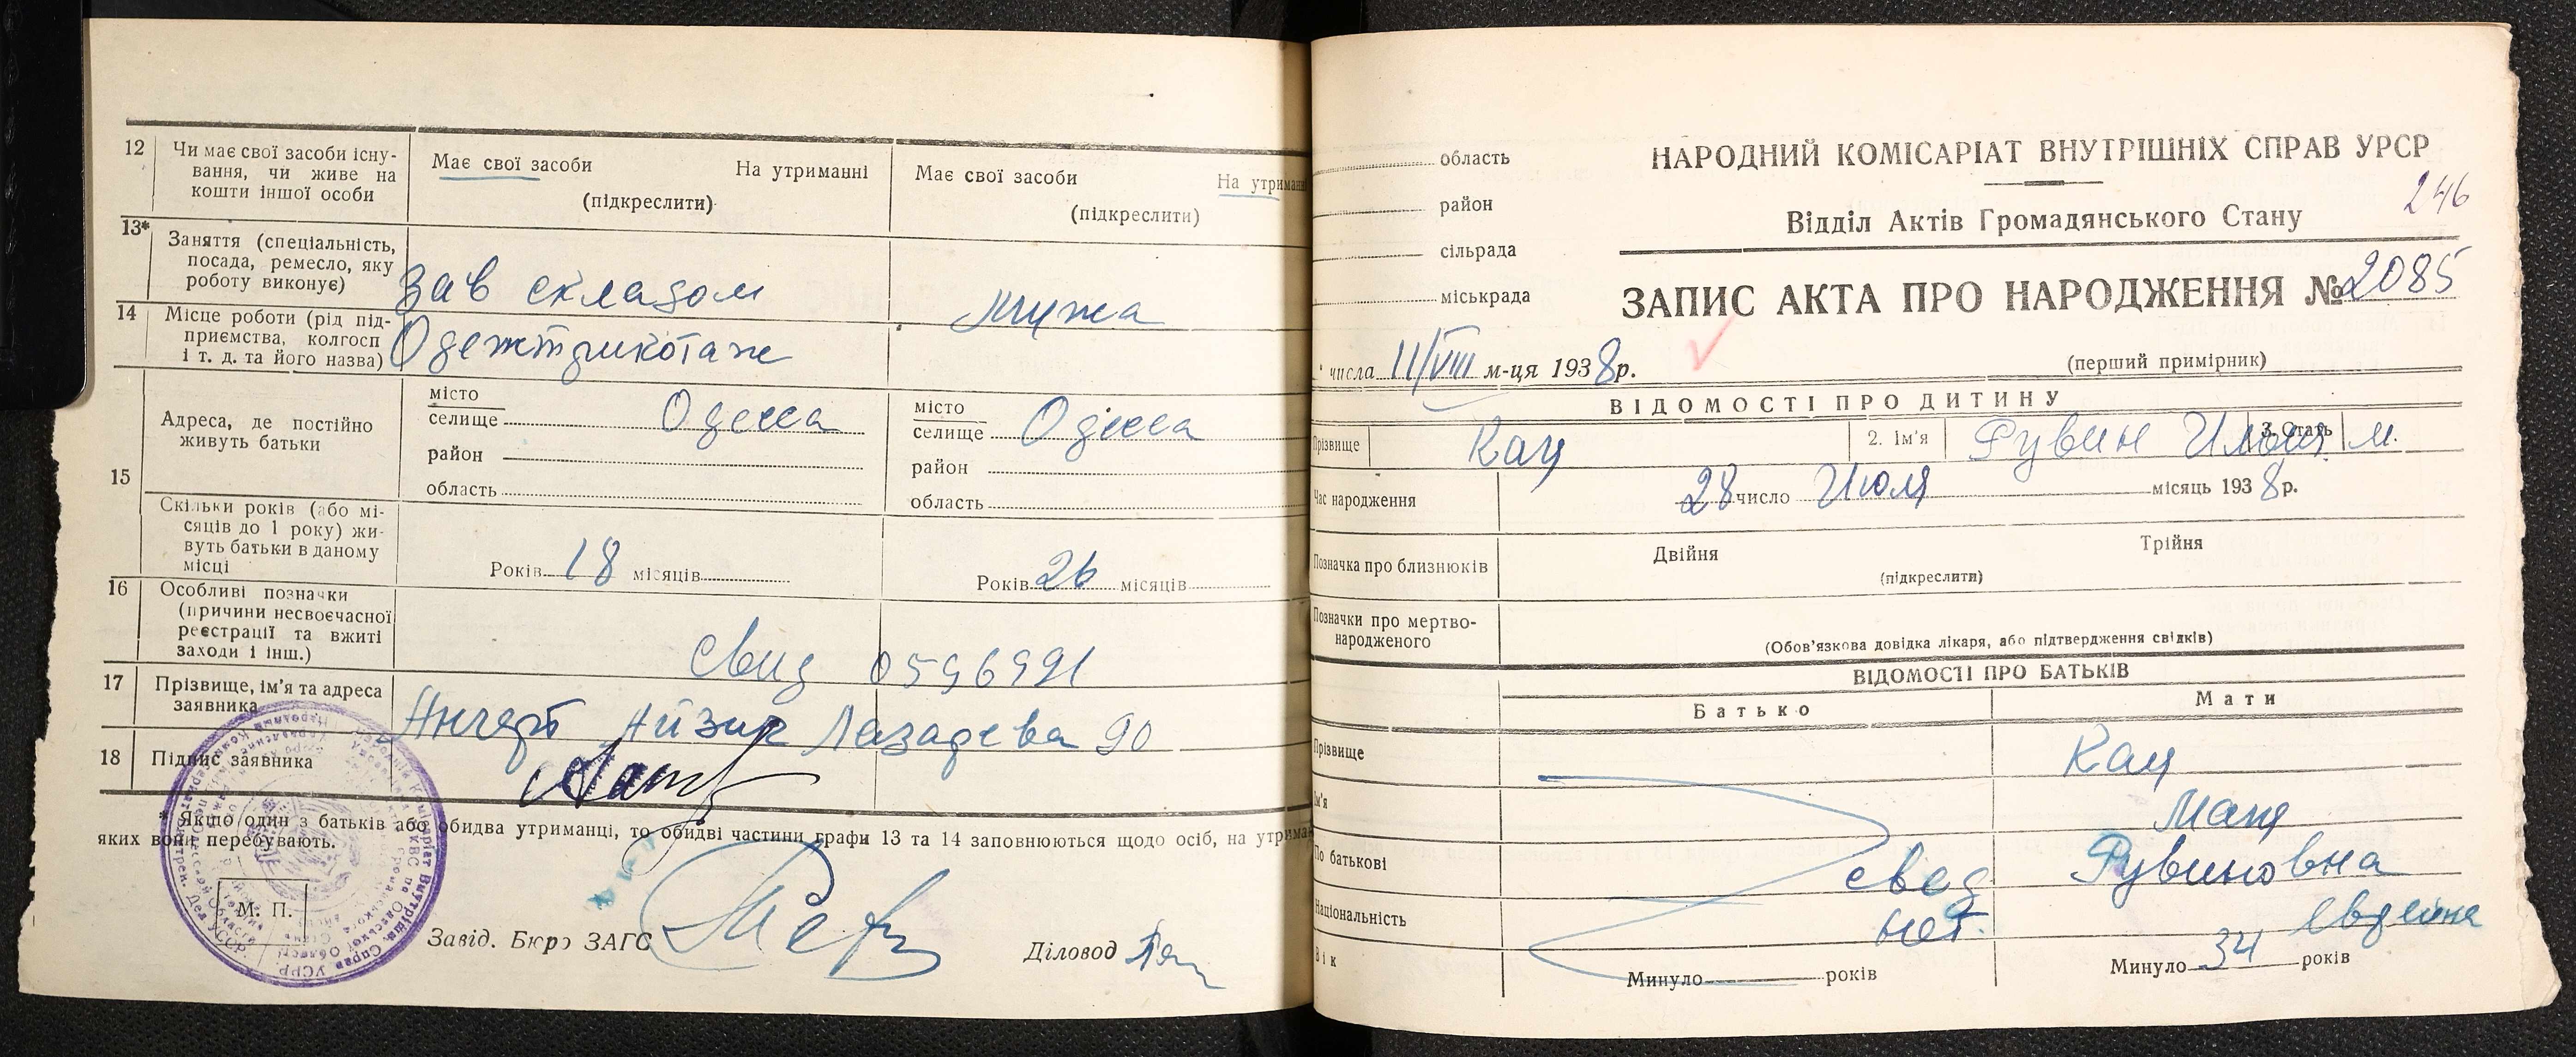 12
Чи має свої засоби існу-
вання, чи живе на
кошти іншої особи
Має свої засоби
На утриманні
(підкреслити)
Має свої засоби
На утриманні
(підкреслити)
13*
Заняття (спеціальність,
посада, ремесло, яку
роботу виконує)
Зав складом
мужа
14
Місце роботи (рід під-
приємства, колгосп
і т. д. та його назва)
Одежтрикотаж
15
Адреса, де постійно
живуть батьки
місто
селище Одесса
район
область
місто
селище Одесса
район
область
Скільки років (або мі-
сяців до 1 року) жи-
вуть батьки в даному
місці
Років 18 місяців
Років 26 місяців
16
Особливі позначки
(причини несвоєчасної
реєстрації та вжиті
заходи і інш.)
Свид 0596991
17
Прізвище, ім'я та адреса
заявника
Ангерт Айзик Лазарева 90
18
Підпис заявника
* Якщо один з батьків або обидва утриманці, то обидві частини графи 13 та 14 заповнюються щодо осіб, на
яких вони перебувають.
М. П.
Завід. Бюро ЗАГС
Діловод
область
район
сільрада
міськрада
НАРОДНИЙ КОМІСАРІАТ ВНУТРІШНІХ СПРАВ УРСР
246
Відділ Актів Громадянського Стану
ЗАПИС АКТА ПРО НАРОДЖЕННЯ № 2085
(перший примірник)
" числа 11/VIII м-ця 1938 р.
ВІДОМОСТІ ПРО ДИТИНУ
Прізвище
Кац
2. Ім'я
Рувин
3. Стать
м.
Час народження
28 число Июля місяць 1938 р.
Позначка про близнюків
Двійня
Трійня
(підкреслити)
Позначки про мертво-
народженого
(Обов'язкова довідка лікаря, або підтвердження свідків)
ВІДОМОСТІ ПРО БАТЬКІВ
Батько
Мати
Прізвище
Кац
Ім'я
Маня
По батькові
свед
Рувиновна
Національність
нет.
еврейка
Вік
Минуло років
Минуло 34 років